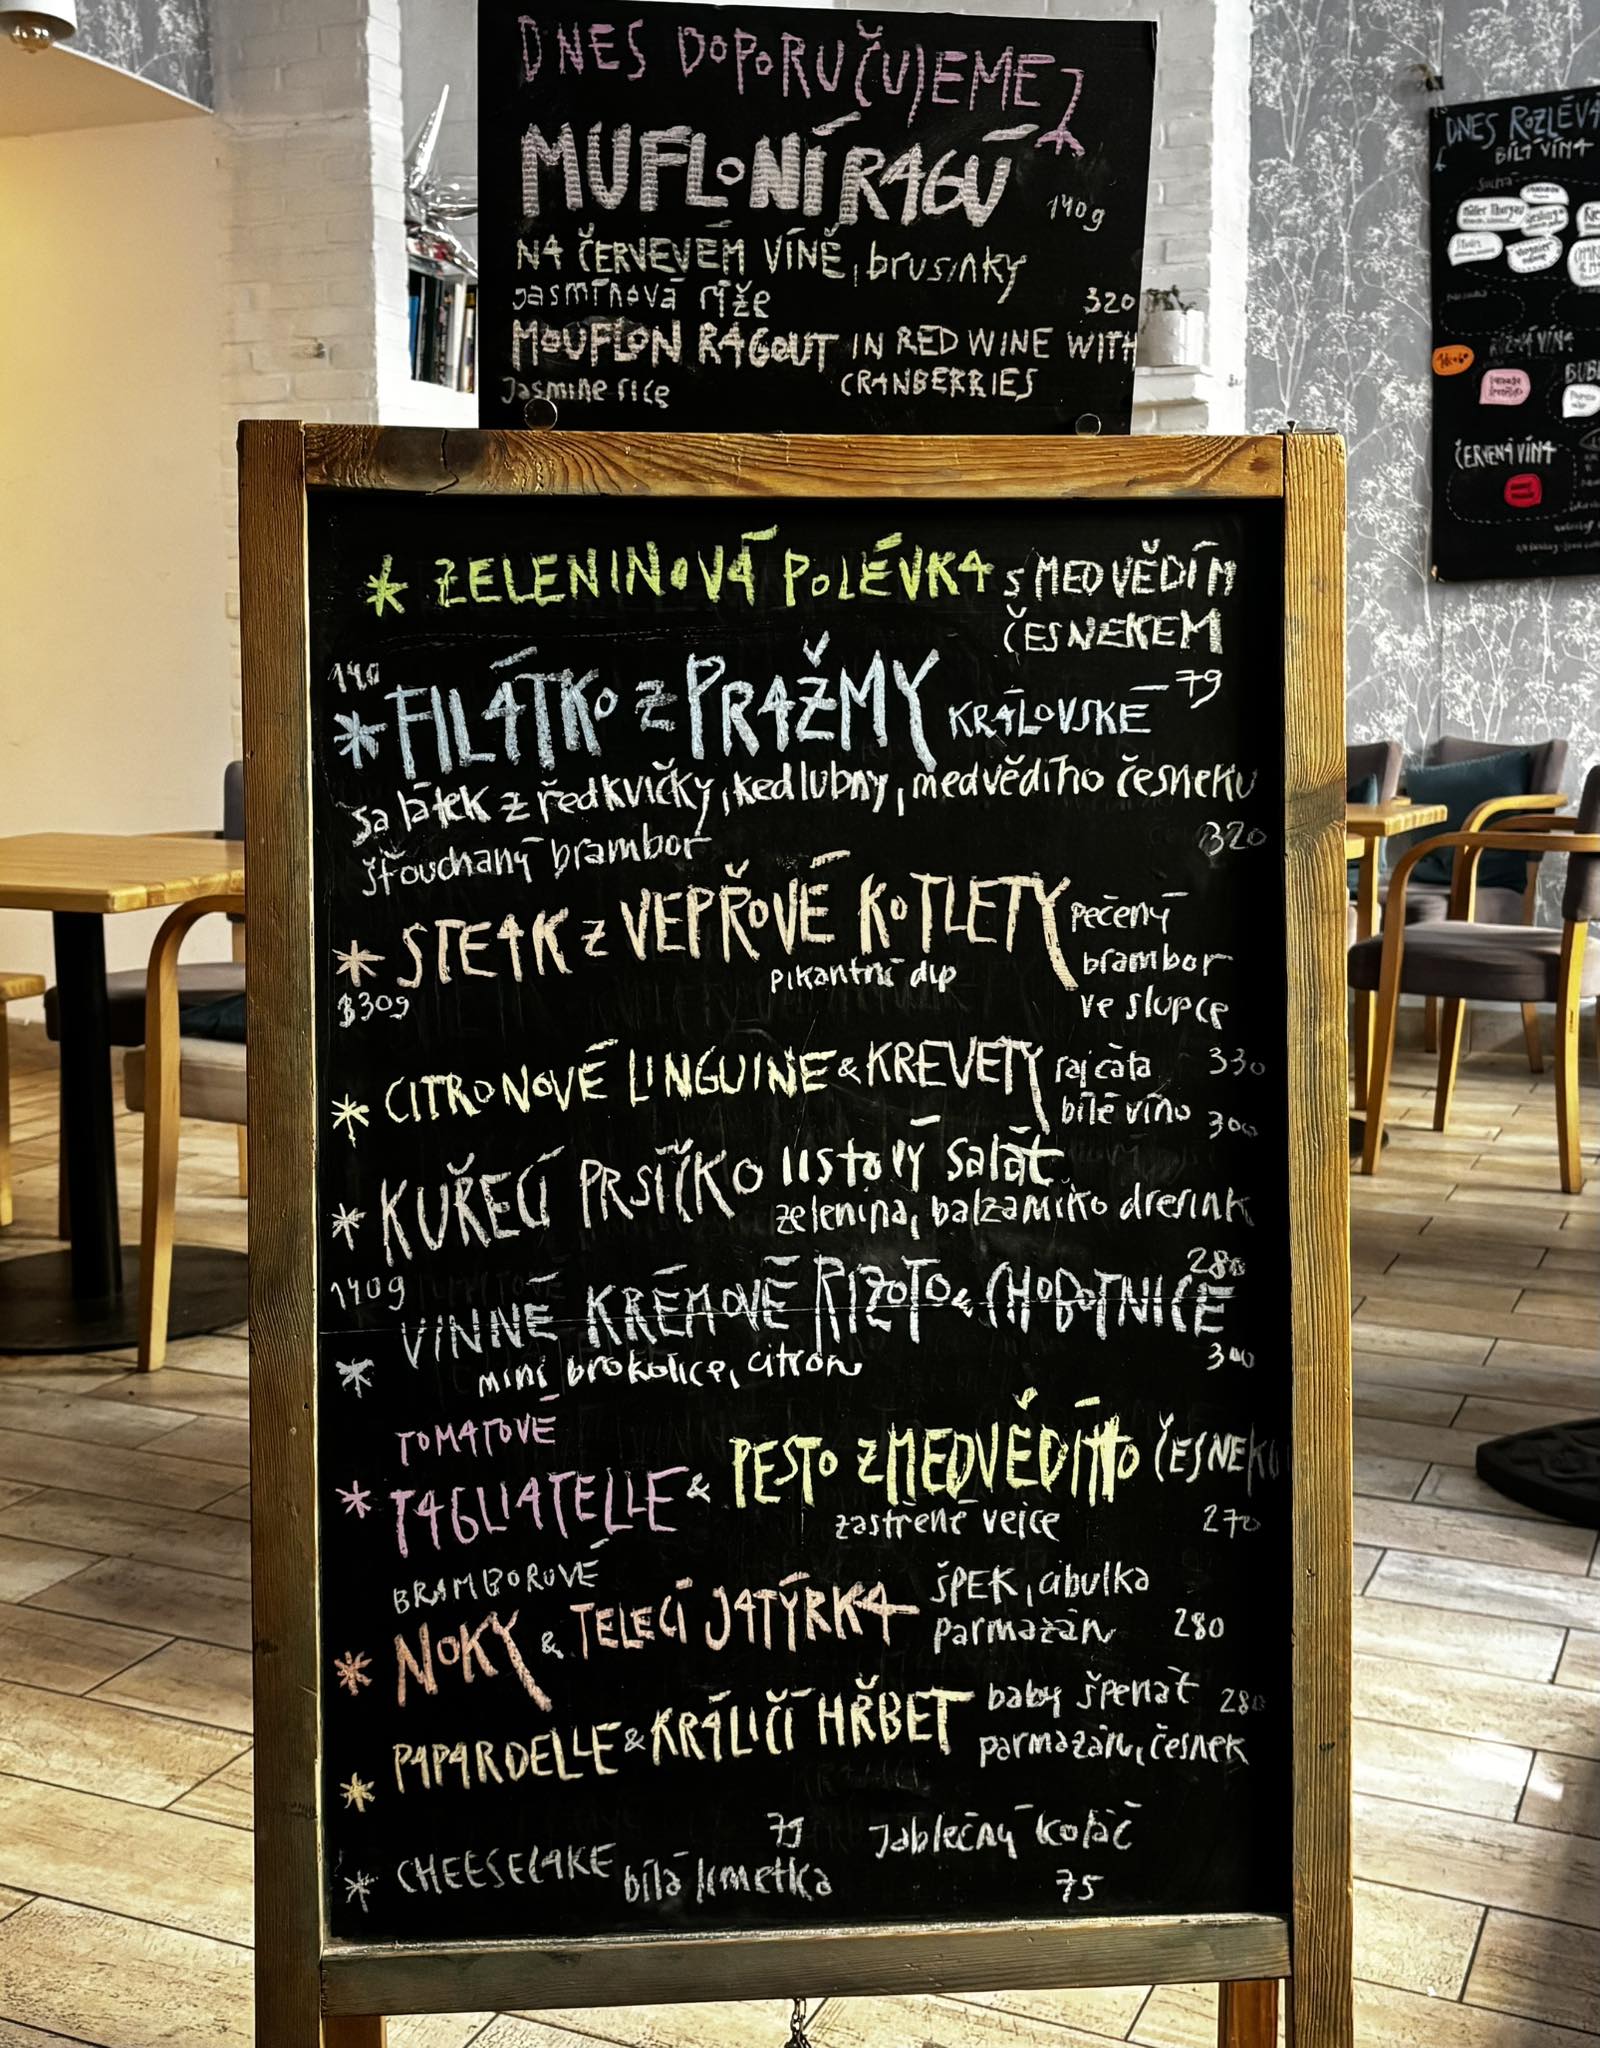 DNES DOPORUČUJEME
MUFLONÍ RAGÚ
140g
NA ČERVEVÉM VÍNĚ, brusinky
Jasmínová rýže 320
MOUFLON RAGOUT IN RED WINE WITH
CRANBERRIES
Jasmine rice
* ZELENINOVÁ POLÉVKA S MEDVĚDÍM
ČESNEKEM
79
140
* FILÁTKO Z PRAŽMY KRÁLOVSKÉ
salátek z ředkvičky, kedlubny, medvědího česneku
šťouchaný brambor 320
* STEAK Z VEPŘOVÉ KOTLETY pečený
pikantní dip brambor
330g ve slupce
* CITRONOVÉ LINGUINE & KREVETY rajčata 330
bílé víno 300
* KUŘECÍ PRSÍČKO listový salát
zelenina, balzamiko dresink
140g 280
VINNÉ KRÉMOVÉ RIZOTO & CHOBOTNICE
* mini brokolice, citron 300
TOMATOVÉ
* TAGLIATELLE & PESTO Z MEDVĚDÍHO ČESNEKU
zastřené vejce 270
BRAMBOROVÉ
* NOKY & TELECÍ JATÝRKA ŠPEK, cibulka
parmazán 280
* PAPARDELLE & KRÁLIČÍ HŘBET baby špenát 280
parmazán, česnek
* CHEESECAKE bílá limetka 75
Jablečný koláč
75
DNES ROZLÉVÁ
BÍLÁ VÍNA
Suchá
Müller Thurgau
RŮŽOVÁ VÍNA
BUB
ČERVENÁ VÍNA